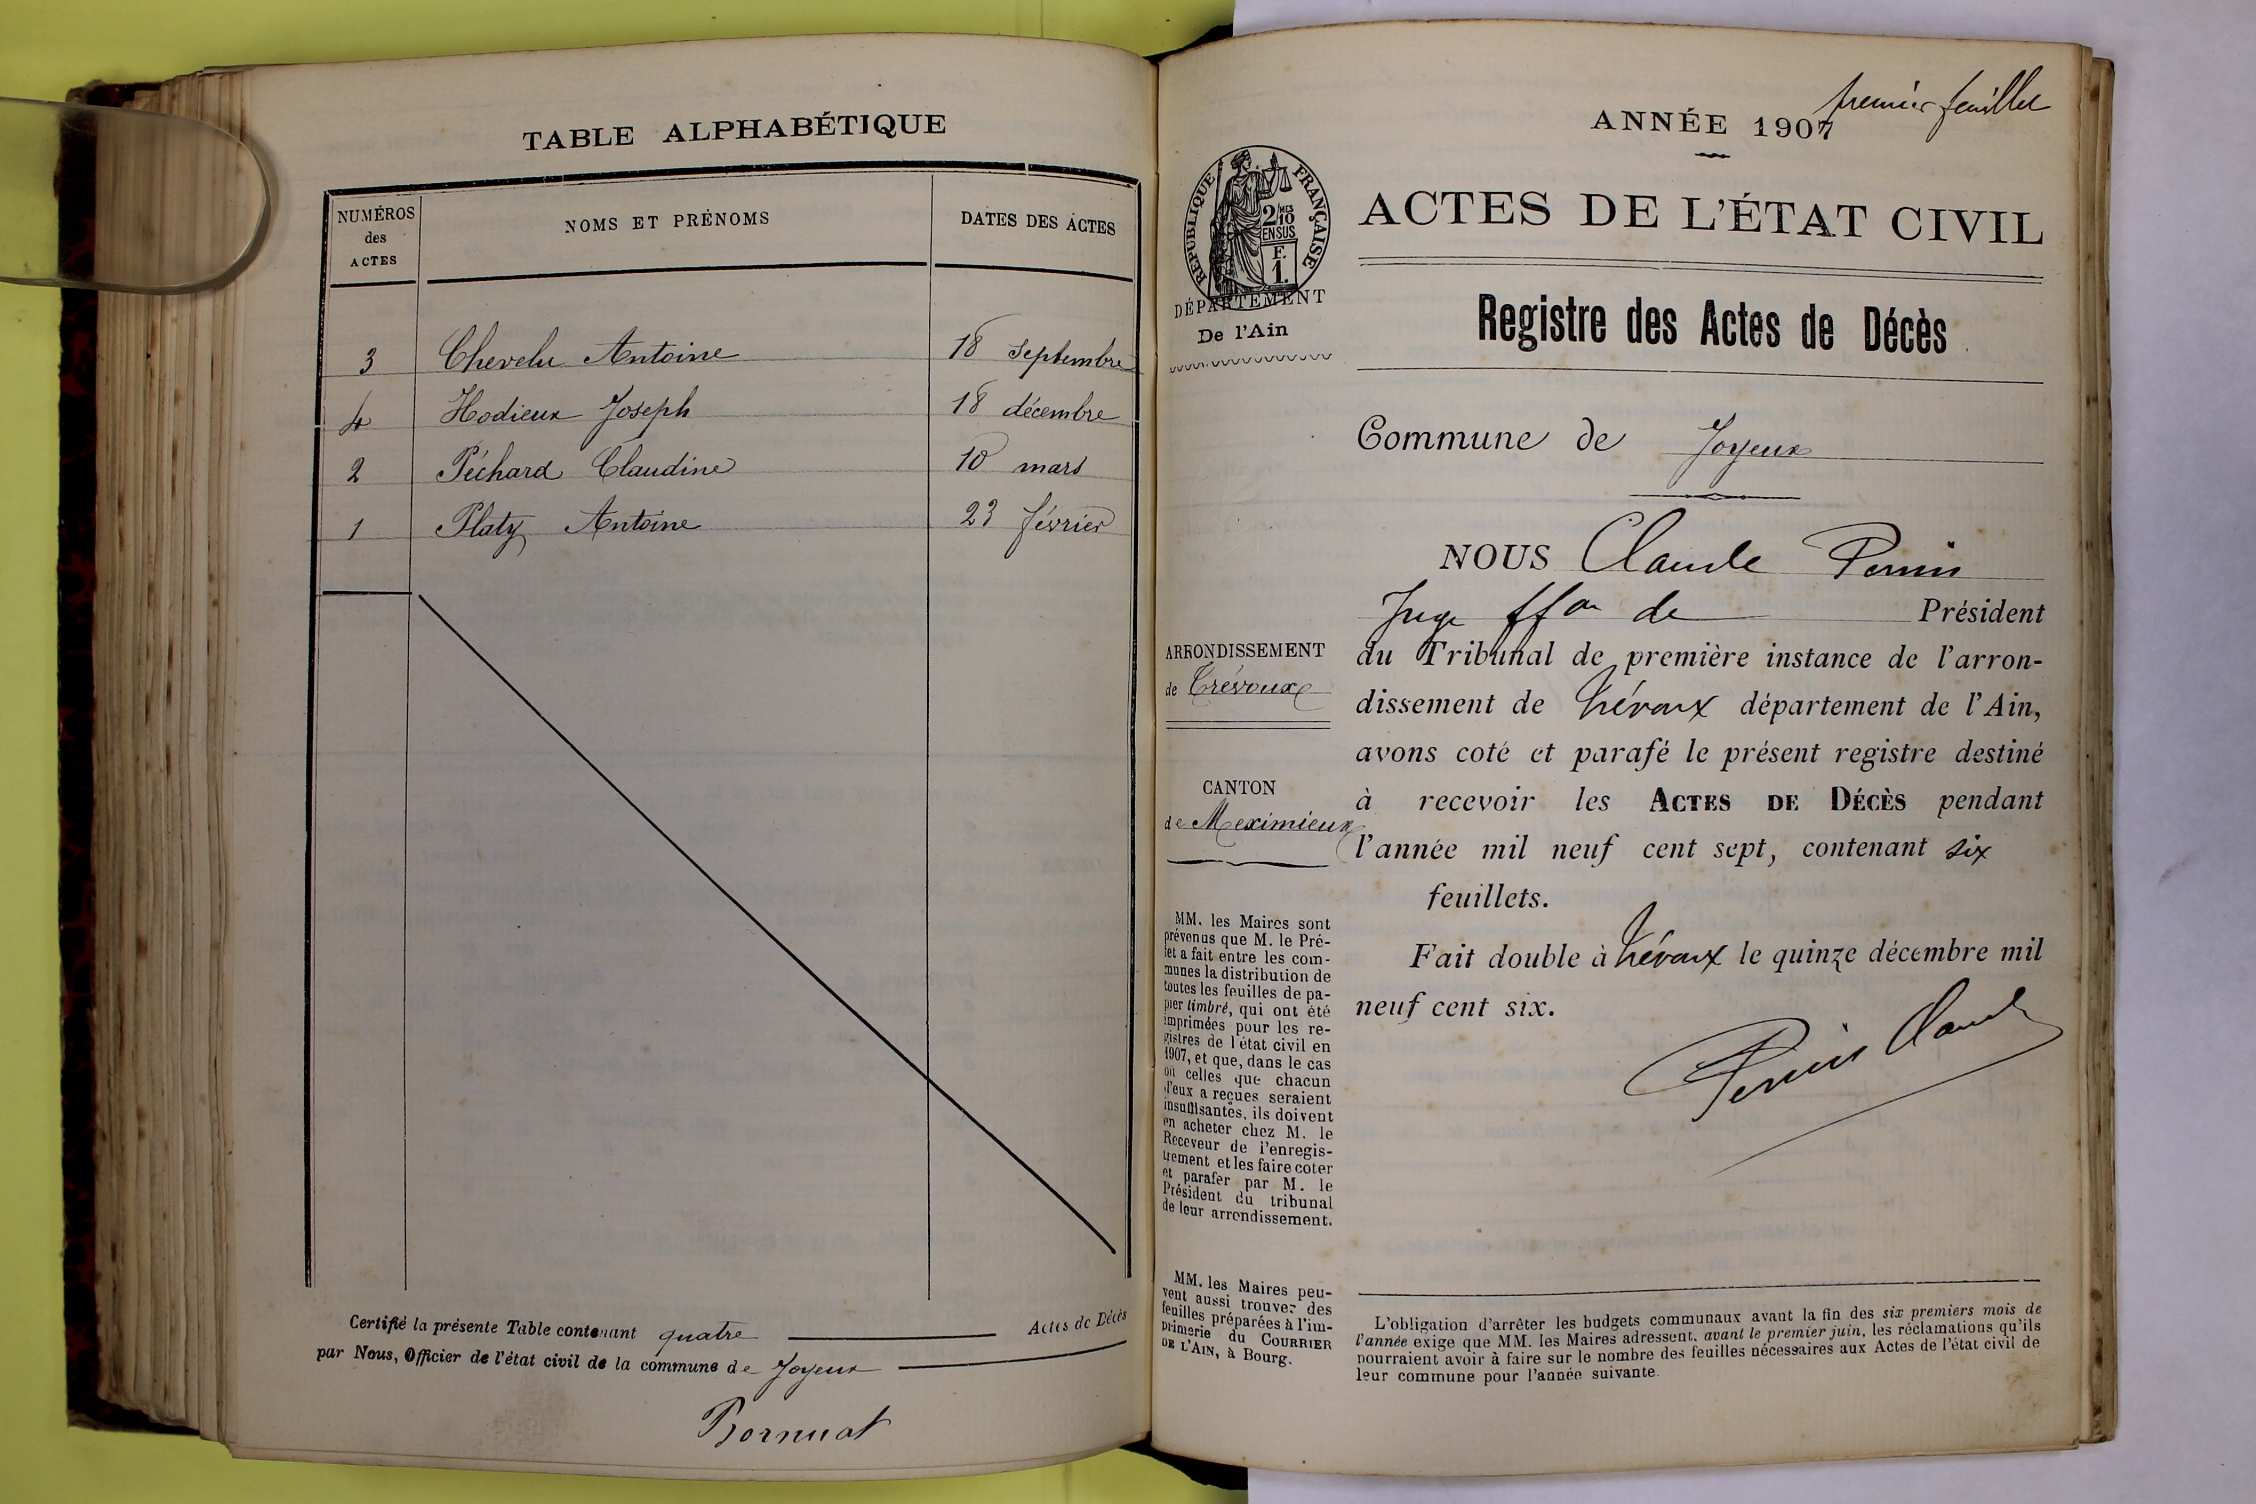 TABLE ALPHABÉTIQUE
NUMÉROS
des
ACTES
NOMS ET PRÉNOMS
DATES DES ACTES
3 Chevelu Antoine 18 septembre
4 Hodieux Joseph 18 décembre
2 Péchard Claudine 10 mars
1 Platy Antoine 23 février
Certifié la présente Table contenant quatre Actes de Décès
par Nous, Officier de l'état civil de la commune de Joyeux
Bornuat
premier feuillet
ANNÉE 1907
RÉPUBLIQUE FRANÇAISE
2/10 MES
EN SUS
F.
1.
DÉPARTEMENT
De l'Ain
ACTES DE L'ÉTAT CIVIL
Registre des Actes de Décès
Commune de Joyeux
NOUS Claude Perrin
Juge ffon de Président
du Tribunal de première instance de l'arron-
dissement de Trévoux département de l'Ain,
avons coté et parafé le présent registre destiné
à recevoir les ACTES DE DÉCÈS pendant
l'année mil neuf cent sept, contenant six
feuillets.
Fait double à Trévoux le quinze décembre mil
neuf cent six.
Perrin Claude
ARRONDISSEMENT
de Trévoux
CANTON
de Meximieux
MM. les Maires sont
prévenus que M. le Pré-
fet a fait entre les com-
munes la distribution de
toutes les feuilles de pa-
pier timbré, qui ont été
imprimées pour les re-
gistres de l'état civil en
1907, et que, dans le cas
où celles que chacun
d'eux a reçues seraient
insuffisantes, ils doivent
en acheter chez M. le
Receveur de l'enregis-
trement et les faire coter
et parafer par M. le
Président du tribunal
de leur arrondissement.
MM. les Maires peu-
vent aussi trouver des
feuilles préparées à l'im-
primerie du COURRIER
DE L'AIN, à Bourg.
L'obligation d'arrêter les budgets communaux avant la fin des six premiers mois de
l'année exige que MM. les Maires adressent, avant le premier juin, les réclamations qu'ils
pourraient avoir à faire sur le nombre des feuilles nécessaires aux Actes de l'état civil de
leur commune pour l'année suivante.